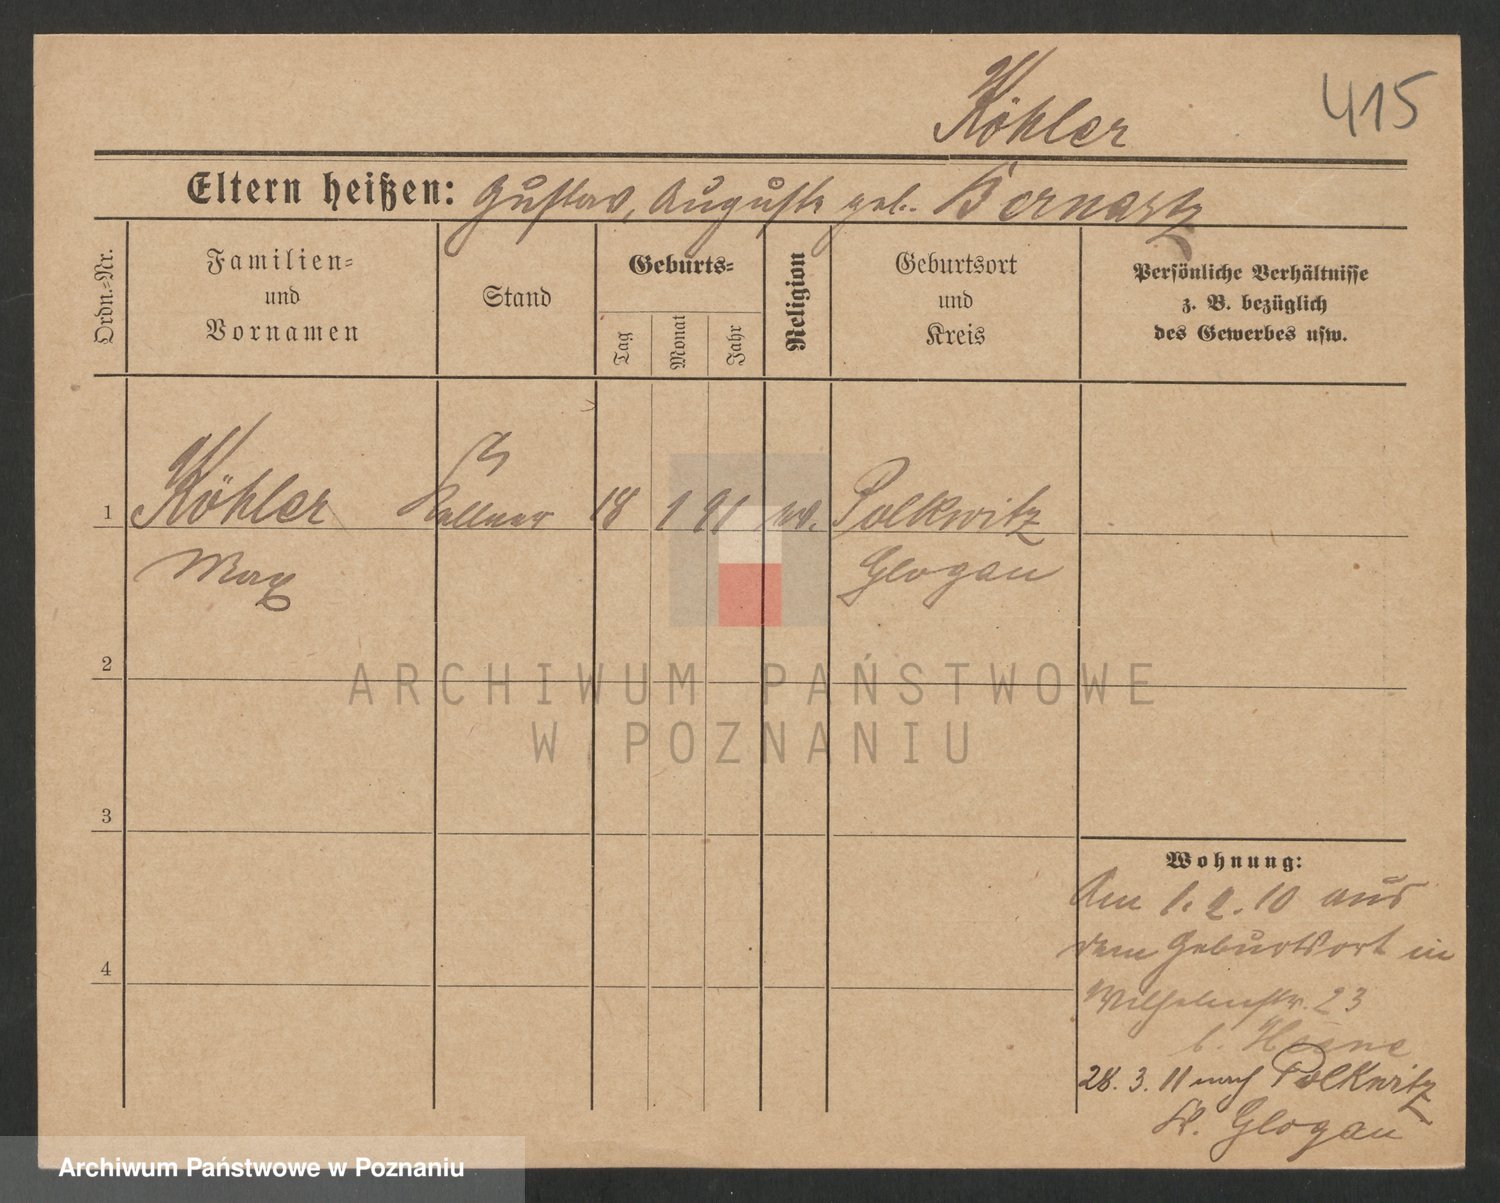 Köhler 415
Eltern heißen: Gustav, Auguste geb. Bernartz
Ordn.=Nr.
Familien=
und
Vornamen
Stand
Geburts=
Tag
Monat
Jahr
Religion
Geburtsort
und
Kreis
Persönliche Verhältnisse
z. B. bezüglich
des Gewerbes usw.
1 Köhler Kellner 18 1 91 ev. Polkwitz
Max Glogau
2
3
4
Wohnung:
Am 1.2.10 aus
dem Geburtsort in
Wilhelmstr. 23
b.
28.3.11 nach Polkwitz
Kr. Glogau
ARCHIWUM PAŃSTWOWE
W POZNANIU
Archiwum Państwowe w Poznaniu